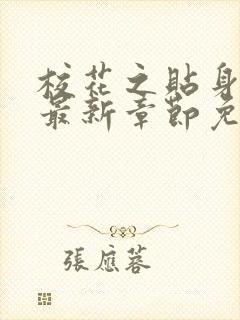 校花之貼身
最新章節免
張應蓉